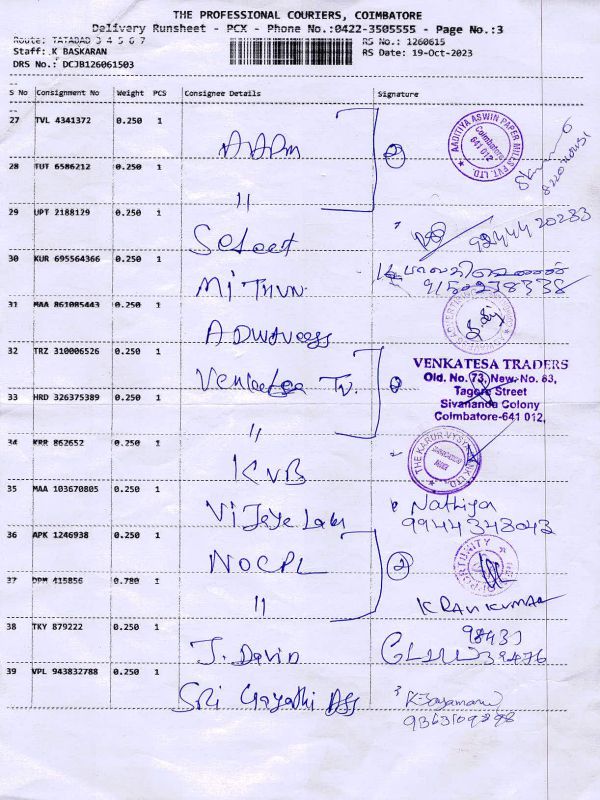 THE PROFESSIONAL COURIERS, COIMBATORE
Delivery Runsheet - PCX - Phone No.:0422-3505555 - Page No.:3
Route: TATABAD 3 4 5 6 7
RS No.: 1260615
Staff: K BASKARAN
RS Date: 19-Oct-2023
DRS No.: DCJB126061503
S No Consignment No Weight PCS Consignee Details Signature
27 TVL 4341372 0.250 1
AADITYA ASWIN PAPER MILLS PVT. LTD.
Coimbatore
641 012
28 TUT 6586212 0.250 1
"
2
29 UPT 2188129 0.250 1
Select
92444 20283
30 KUR 695564366 0.250 1
Mithun
9150278338
31 MAA 861085443 0.250 1
32 TRZ 310006526 0.250 1
Venkatesa Tr.
VENKATESA TRADERS
Old. No. 73, New. No. 63,
Tagore Street
Sivananda Colony
Coimbatore-641 012.
33 HRD 326375389 0.250 1
"
34 KRR 862652 0.250 1
KVB
THE KARUR VYSYA BANK LTD.
35 MAA 103670805 0.250 1
Nathiya
9944348043
36 APK 1246938 0.250 1
NOCPL
2
37 DPM 415856 0.780 1
"
38 TKY 879222 0.250 1
J. David
98431
39476
39 VPL 943832788 0.250 1
Sri Gayathi Ass